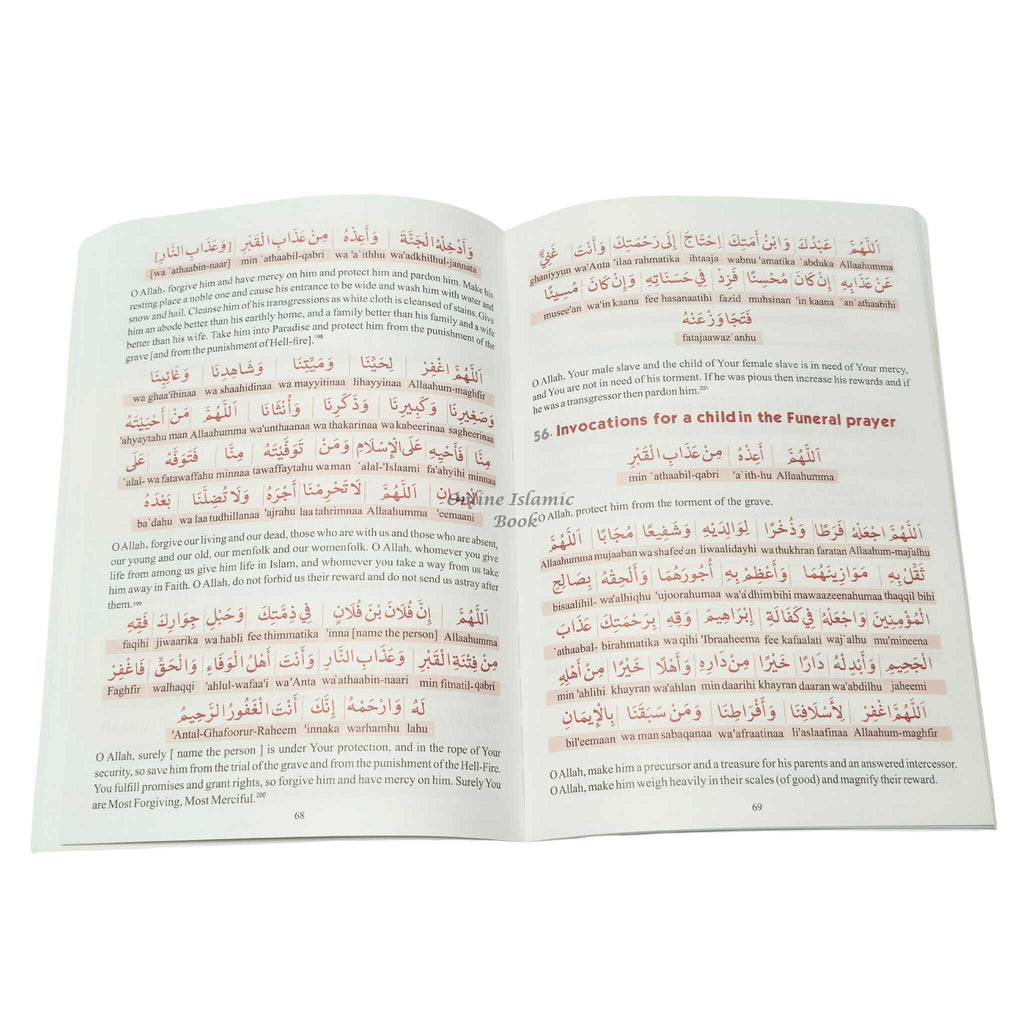 وَأَدْخِلْهُ الْجَنَّةَ وَأَعِذْهُ مِنْ عَذَابِ الْقَبْرِ [وَعَذَابِ النَّارِ]
[wa 'athaabin-naar] min `athaabil-qabri wa'a`ithhu wa'adkhilhul-jannata
O Allah, forgive him and have mercy on him and protect him and pardon him. Make his
resting place a noble one and cause his entrance to be wide and wash him with water and
snow and hail. Cleanse him of his transgressions as white cloth is cleansed of stains. Give
him an abode better than his earthly home, and a family better than his family and a wife
better than his wife. Take him into Paradise and protect him from the punishment of the
grave [and from the punishment of Hell-fire].198
اَللّٰهُمَّ اغْفِرْ لِحَيِّنَا وَمَيِّتِنَا وَشَاهِدِنَا وَغَائِبِنَا
wa ghaa'ibinaa wa shaahidinaa wa mayyitinaa lihayyinaa Allaahum-maghfir
وَصَغِيرِنَا وَكَبِيرِنَا وَذَكَرِنَا وَأُنْثَانَا اَللّٰهُمَّ مَنْ أَحْيَيْتَهُ
'ahyaytahu man Allaahumma wa'unthaanaa wa thakarinaa wa kabeerinaa wa sagheerinaa
مِنَّا فَأَحْيِهِ عَلَى الْإِسْلَامِ وَمَنْ تَوَفَّيْتَهُ مِنَّا فَتَوَفَّهُ عَلَى
`alal- wa fatawaffahu minnaa tawaffaytahu wa man `alal-'Islaami fa'ahyihi minnaa
الْإِيمَانِ اَللّٰهُمَّ لَا تَحْرِمْنَا أَجْرَهُ وَلَا تُضِلَّنَا بَعْدَهُ
ba`dahu wa laa tudhillanaa 'ajrahu laa tahrimnaa Allaahumma 'eemaani
O Allah, forgive our living and our dead, those who are with us and those who are absent,
our young and our old, our menfolk and our womenfolk. O Allah, whomever you give
life from among us give him life in Islam, and whomever you take a way from us take
him away in Faith. O Allah, do not forbid us their reward and do not send us astray after
them.199
اَللّٰهُمَّ إِنَّ فُلَانَ بْنَ فُلَانٍ فِي ذِمَّتِكَ وَحَبْلِ جِوَارِكَ فَقِهِ
faqihi jiwaarika wa habli fee thimmatika 'inna [name the person] Allaahumma
مِنْ فِتْنَةِ الْقَبْرِ وَعَذَابِ النَّارِ وَأَنْتَ أَهْلُ الْوَفَاءِ وَالْحَقِّ فَاغْفِرْ
Faghfir walhaqqi 'ahlul-wafaa'i wa'Anta wa`athaabin-naari min fitnatil-qabri
لَهُ وَارْحَمْهُ إِنَّكَ أَنْتَ الْغَفُورُ الرَّحِيمُ
'Antal-Ghafoorur-Raheem 'innaka warhamhu lahu
O Allah, surely [ name the person ] is under Your protection, and in the rope of Your
security, so save him from the trial of the grave and from the punishment of the Hell-Fire.
You fulfill promises and grant rights, so forgive him and have mercy on him. Surely You
are Most Forgiving, Most Merciful.200
68
اَللّٰهُمَّ عَبْدُكَ وَابْنُ أَمَتِكَ احْتَاجَ إِلَى رَحْمَتِكَ وَأَنْتَ غَنِيٌّ
ghaniyyun wa'Anta 'ilaa rahmatika ihtaaja wabnu 'amatika `abduka Allaahumma
عَنْ عَذَابِهِ إِنْ كَانَ مُحْسِنًا فَزِدْ فِي حَسَنَاتِهِ وَإِنْ كَانَ مُسِيئًا
musee'an wa'in kaana fee hasanaatihi fazid muhsinan 'in kaana `an 'athaabihi
فَتَجَاوَزْ عَنْهُ
fatajaawaz `anhu
O Allah, Your male slave and the child of Your female slave is in need of Your mercy,
and You are not in need of his torment. If he was pious then increase his rewards and if
he was a transgressor then pardon him.201
56. Invocations for a child in the Funeral prayer
اَللّٰهُمَّ أَعِذْهُ مِنْ عَذَابِ الْقَبْرِ
min `athaabil-qabri 'a`ith-hu Allaahumma
O Allah, protect him from the torment of the grave.
اَللّٰهُمَّ اجْعَلْهُ فَرَطًا وَذُخْرًا لِوَالِدَيْهِ وَشَفِيعًا مُجَابًا اَللّٰهُمَّ
Allaahumma mujaaban wa shafee'an liwaalidayhi wa thukhran faratan Allaahum-maj'alhu
ثَقِّلْ بِهِ مَوَازِينَهُمَا وَأَعْظِمْ بِهِ أُجُورَهُمَا وَأَلْحِقْهُ بِصَالِحِ
bisaalihil- wa'alhiqhu 'ujoorahumaa wa'a`dhim bihi mawaazeenahumaa thaqqil bihi
الْمُؤْمِنِينَ وَاجْعَلْهُ فِي كَفَالَةِ إِبْرَاهِيمَ وَقِهِ بِرَحْمَتِكَ عَذَابَ
`athaabal- birahmatika wa qihi 'Ibraaheema fee kafaalati waj`alhu mu'mineena
الْجَحِيمِ وَأَبْدِلْهُ دَارًا خَيْرًا مِنْ دَارِهِ وَأَهْلًا خَيْرًا مِنْ أَهْلِهِ
min 'ahlihi khayran wa'ahlan min daarihi khayran daaran wa'abdilhu jaheemi
اَللّٰهُمَّ اغْفِرْ لِأَسْلَافِنَا وَأَفْرَاطِنَا وَمَنْ سَبَقَنَا بِالْإِيمَانِ
bil'eemaan wa man sabaqanaa wa'afraatinaa li'aslaafinaa Allaahum-maghfir
O Allah, make him a precursor and a treasure for his parents and an answered intercessor.
O Allah, make him weigh heavily in their scales (of good) and magnify their reward.
69
Online Islamic
Book